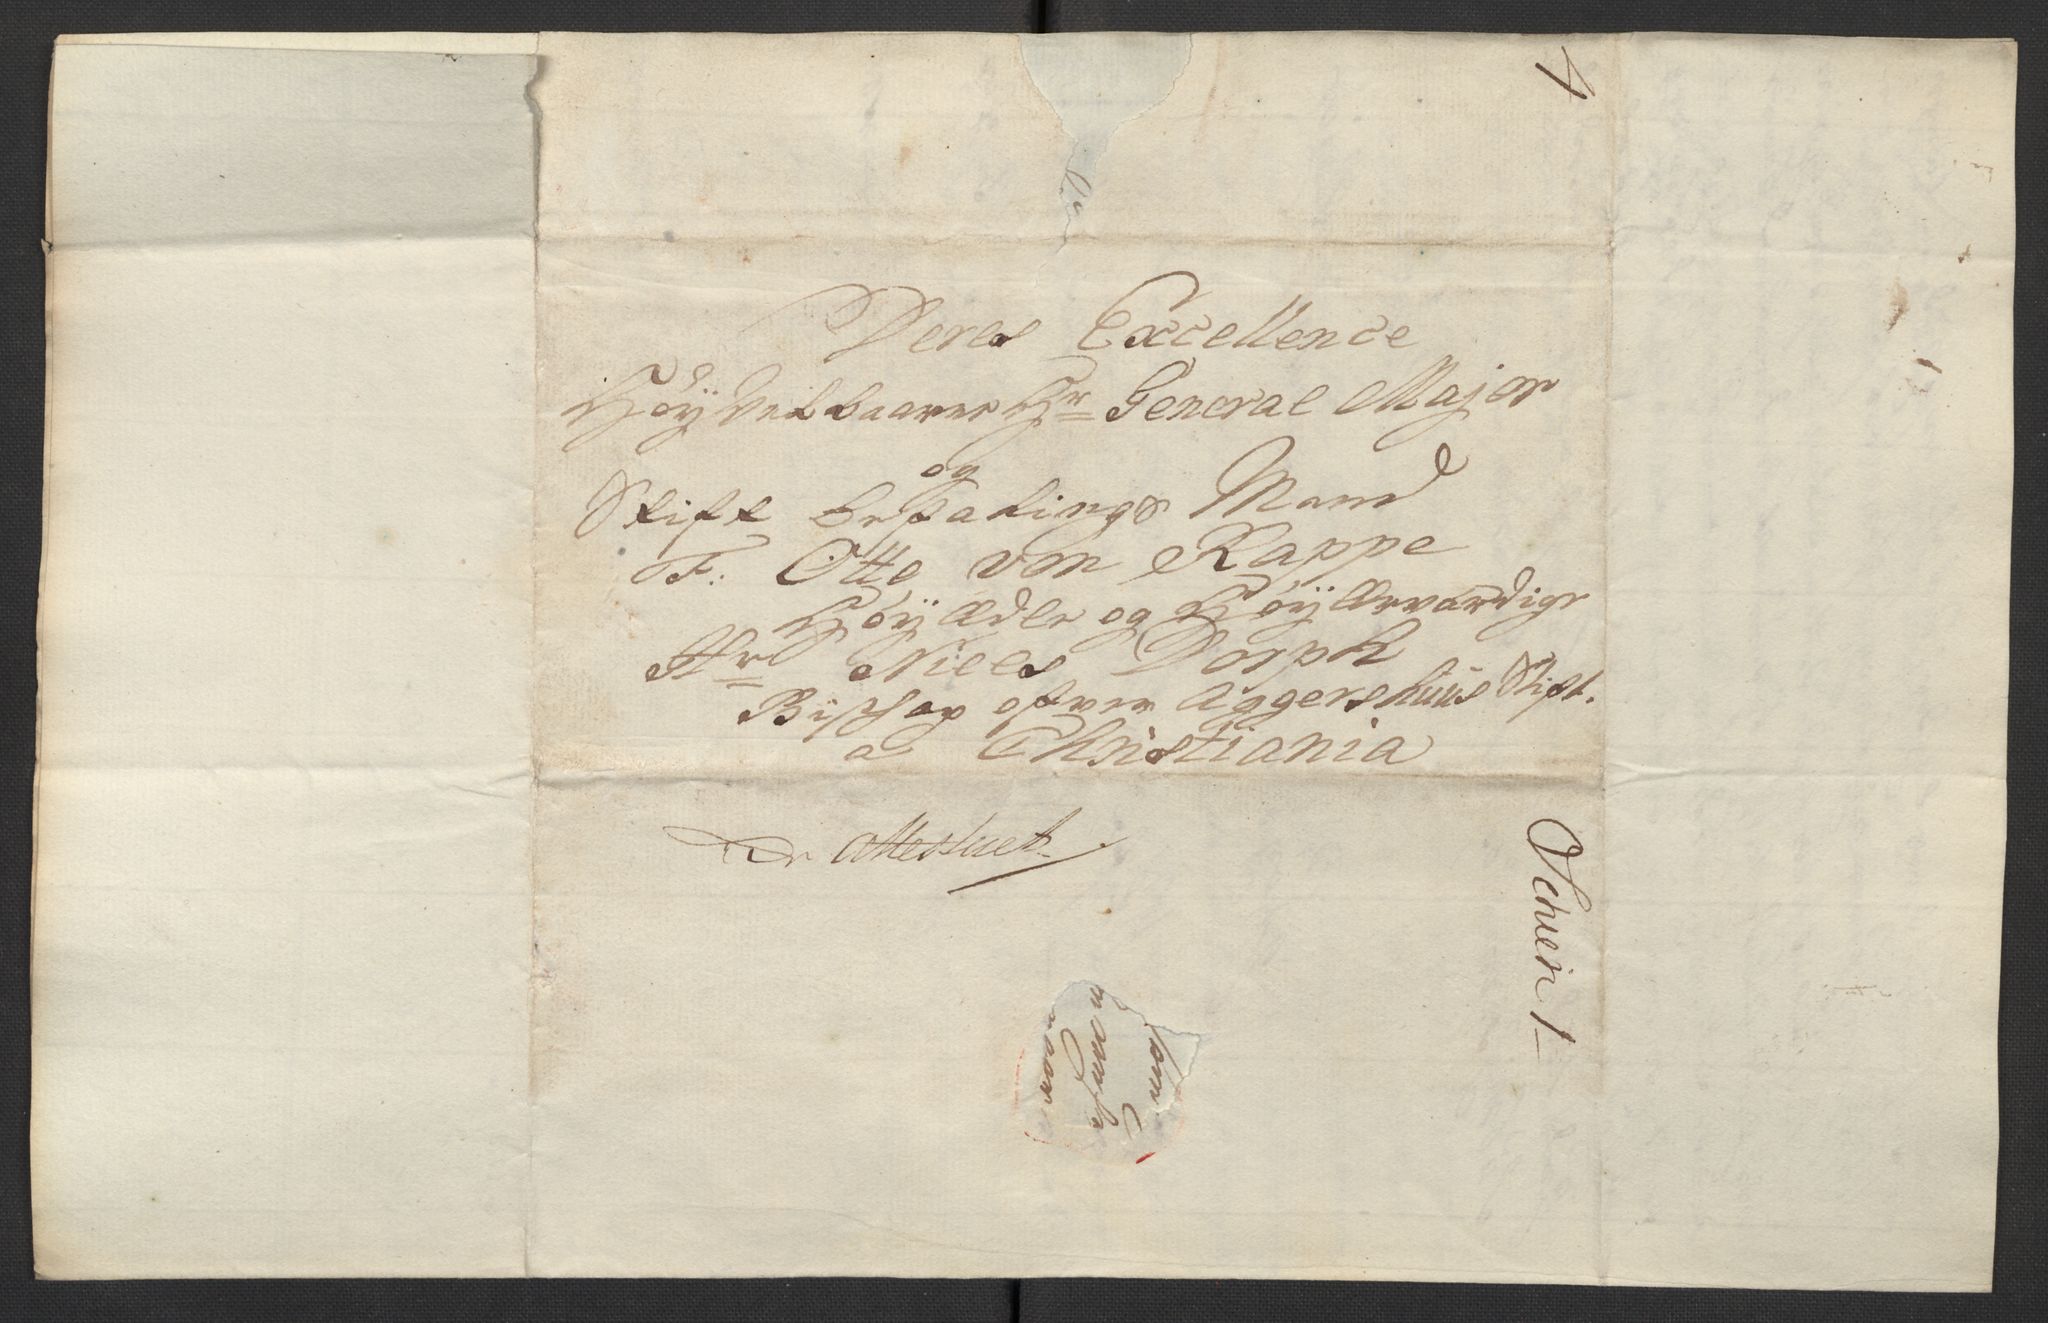 4
Deres Excellence
Höy Velbaarne Hr General Major
og
Stift befalings Mand
F. Otte von Rappe
Höy Ædle og Höy Ærværdige
Hr Niels Dorph
Bischop ofver Aggershuus Stift.
a Christiania